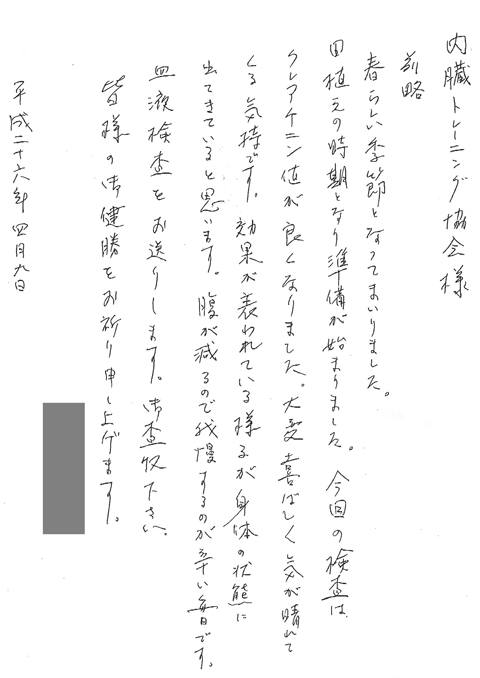 内臓トレーニング協会様
前略
春らしい季節となってまいりました。
田植えの時期となり準備が始まりました。今回の検査は
クレアチニン値が良くなりました。大変喜ばしく気が晴れて
くる気持です。効果が表われている様るが身体の状態に
出てきていると思います。腹が減るので我慢するのが辛い毎日です。
血液検査をお送りします。御査収下さい。
皆様の御健勝をお祈り申し上げます。
平成二十六年四月九日